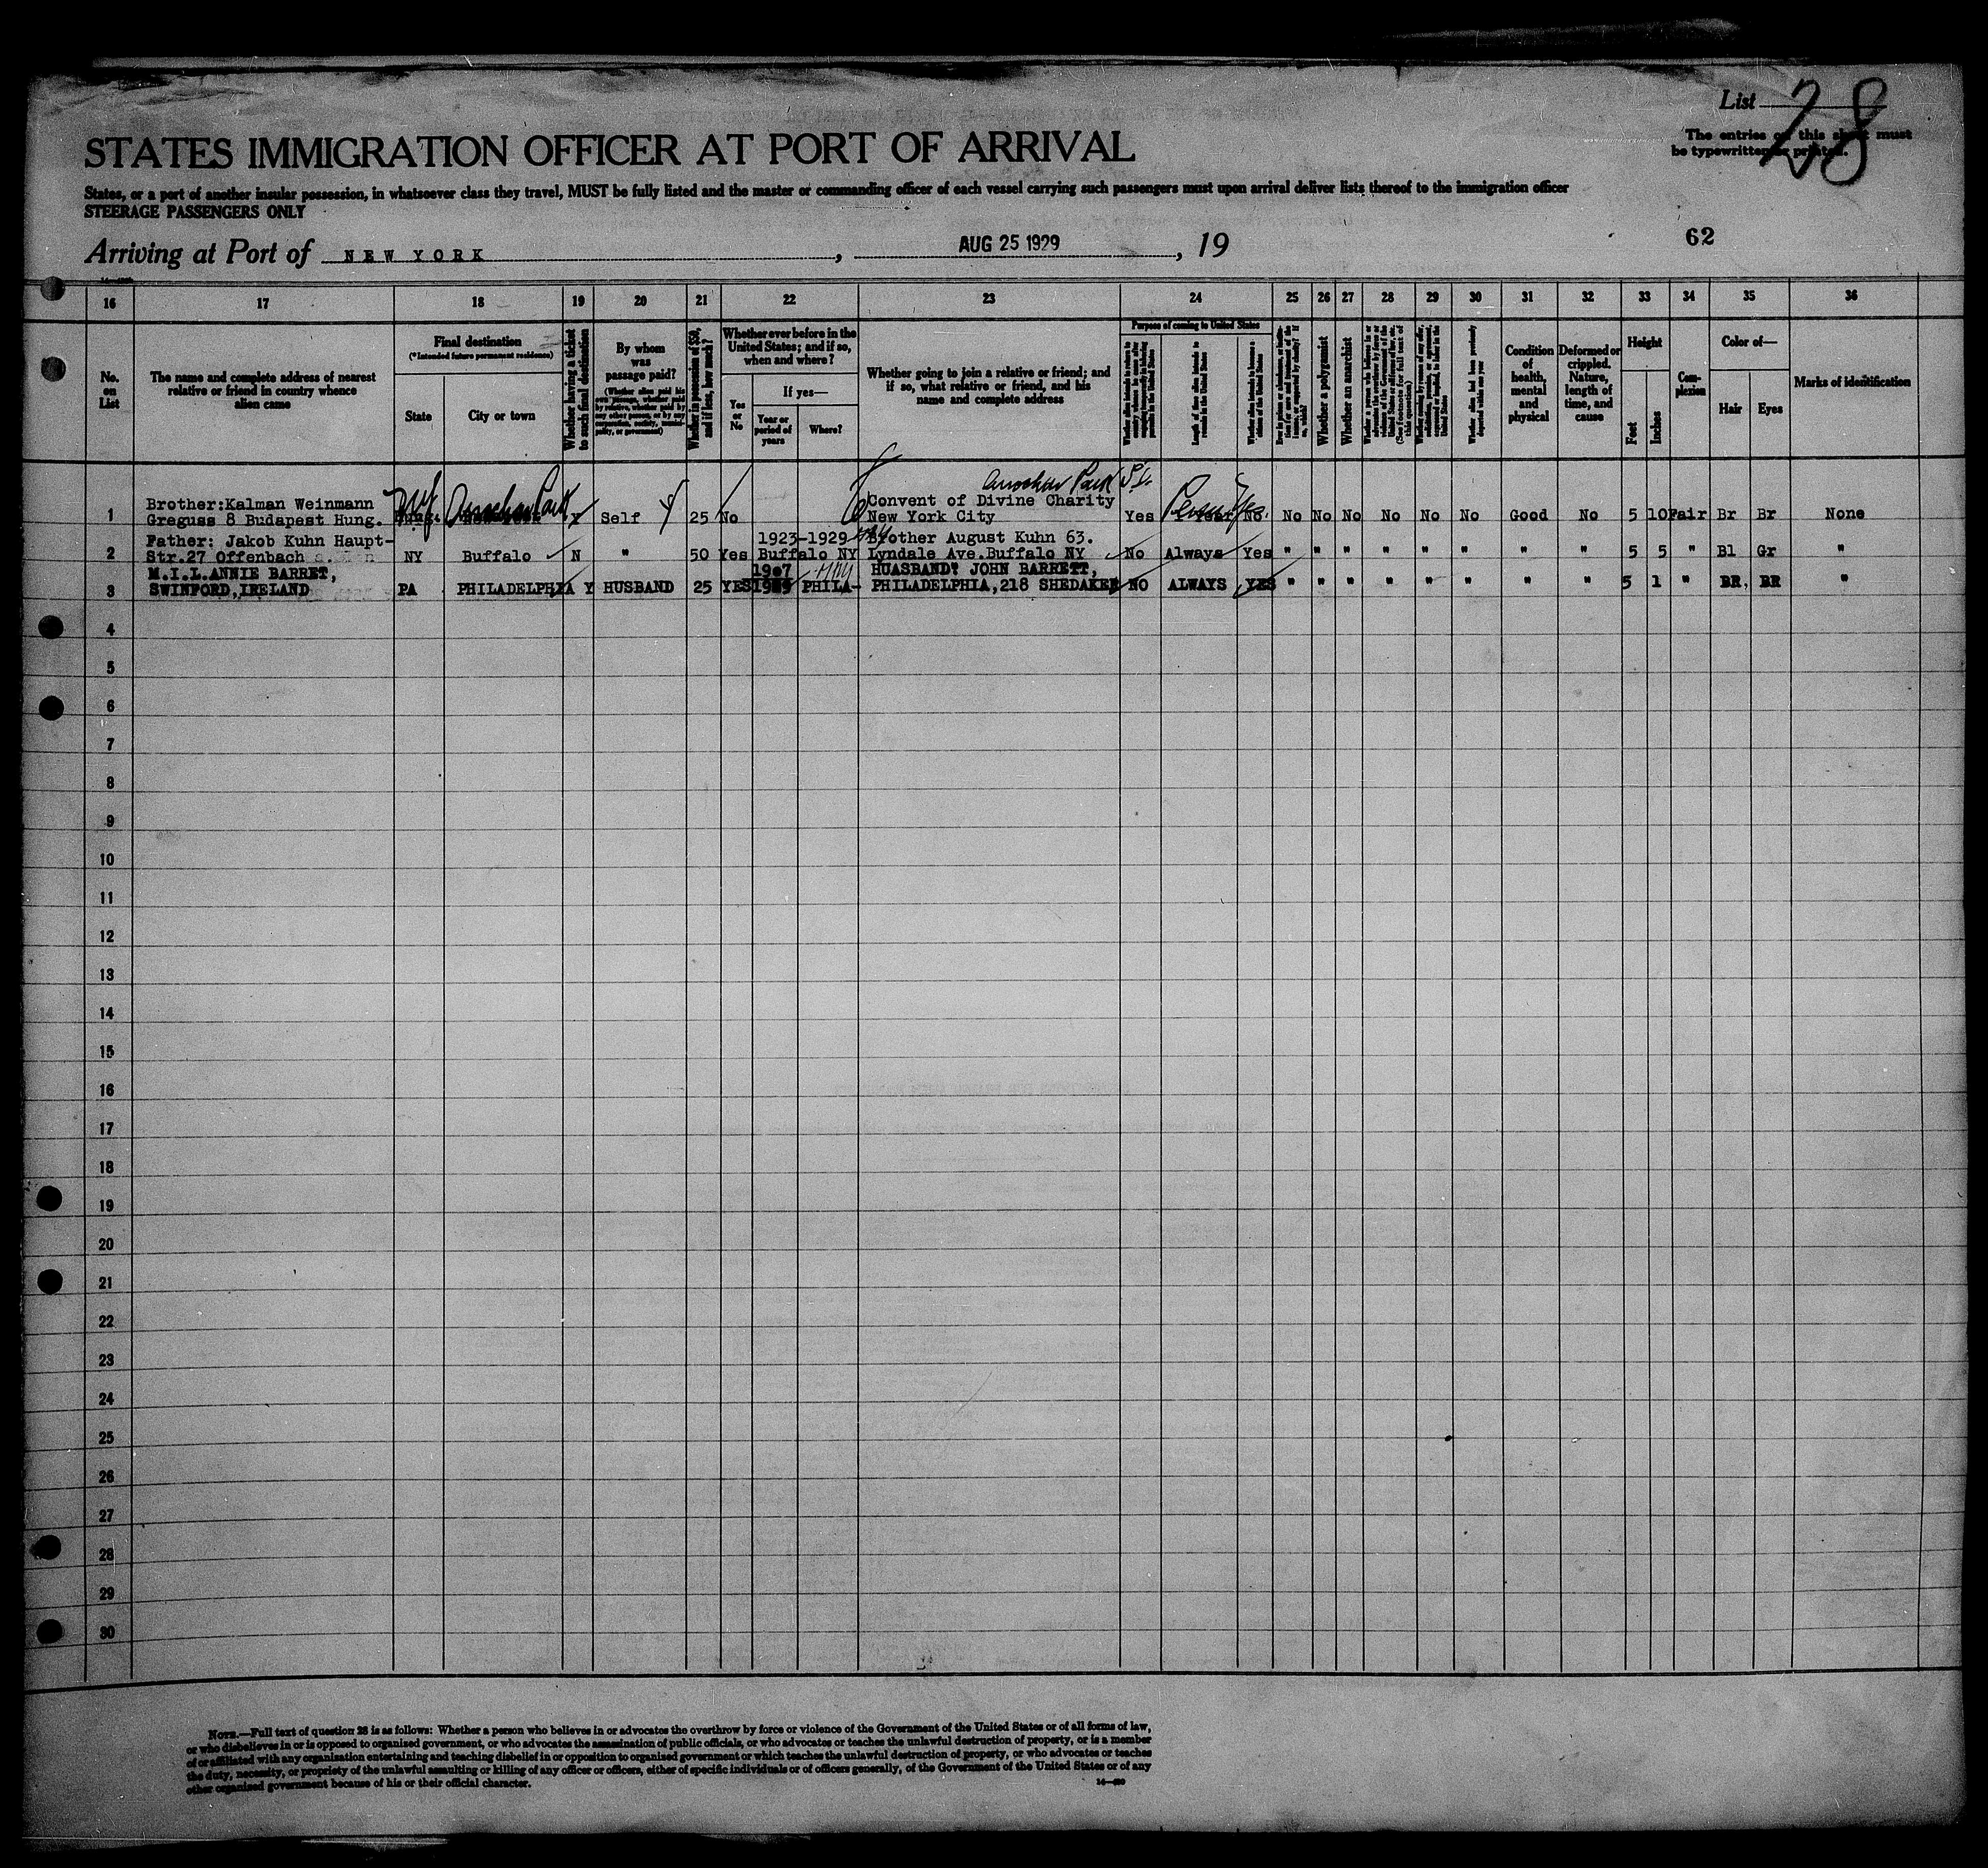 List 28
The entries on this sheet must
be typewritten or printed.
STATES IMMIGRATION OFFICER AT PORT OF ARRIVAL
States, or a port of another insular possession, in whatsoever class they travel, MUST be fully listed and the master or commanding officer of each vessel carrying such passengers must upon arrival deliver lists thereof to the immigration officer
STEERAGE PASSENGERS ONLY
Arriving at Port of NEW YORK, AUG 25 1929, 19
62
16 17 18 19 20 21 22 23 24 25 26 27 28 29 30 31 32 33 34 35 36
No.
on
List
The name and complete address of nearest
relative or friend in country whence
alien came
Final destination
(*Intended future permanent residence)
State
City or town
Whether having a ticket
to such final destination
By whom
was
passage paid?
Whether in possession of $50,
and if less, how much?
Whether ever before in the
United States; and if so,
when and where?
Yes
or
No
If yes—
Year or
period of
years
Where?
Whether going to join a relative or friend; and
if so, what relative or friend, and his
name and complete address
Purpose of coming to United States
Length of time alien intends to
remain in the United States
Whether a polygamist
Whether an anarchist
Whether alien had been previously
deported within one year
Condition
of
health,
mental
and
physical
Deformed or
crippled.
Nature,
length of
time, and
cause
Height
Feet
Inches
Com-
plexion
Color of—
Hair
Eyes
Marks of identification
Arrochar Park S.I.
Brother:Kalman Weinmann
Convent of Divine Charity
1 Greguss 8 Budapest Hung. NY Arrochar Park Y Self 25 No New York City Yes Yes No No No No No No Good No 5 10 Fair Br Br None
Father: Jakob Kuhn Haupt- 1923-1929 Brother August Kuhn 63.
2 Str.27 Offenbach NY Buffalo N " 50 Yes Buffalo NY Lyndale Ave.Buffalo NY No Always Yes " " " " " " " " 5 5 " Bl Gr "
M.I.L.ANNIE BARRET, 1907 HUASBAND: JOHN BARRETT,
3 SWINFORD,IRELAND PA PHILADELPHIA Y HUSBAND 25 YES 1929 PHILA- PHILADELPHIA,218 SHEDAKER NO ALWAYS YES " " " " " " " " 5 1 " BR. BR "
4
5
6
7
8
9
10
11
12
13
14
15
16
17
18
19
20
21
22
23
24
25
26
27
28
29
30
NOTE.—Full text of question 28 is as follows: Whether a person who believes in or advocates the overthrow by force or violence of the Government of the United States or of all forms of law,
or who disbelieves in or is opposed to organized government, or who advocates the assassination of public officials, or who advocates or teaches the unlawful destruction of property, or is a member
of or affiliated with any organization entertaining and teaching disbelief in or opposition to organized government or which teaches the unlawful destruction of property, or who advocates or teaches
the duty, necessity, or propriety of the unlawful assaulting or killing of any officer or officers, either of specific individuals or of officers generally, of the Government of the United States or of any
other organized government because of his or their official character.